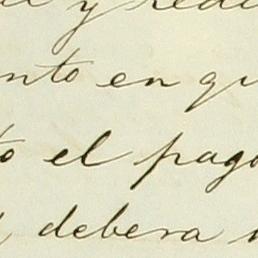 y
nto en qu
to el pago
debera